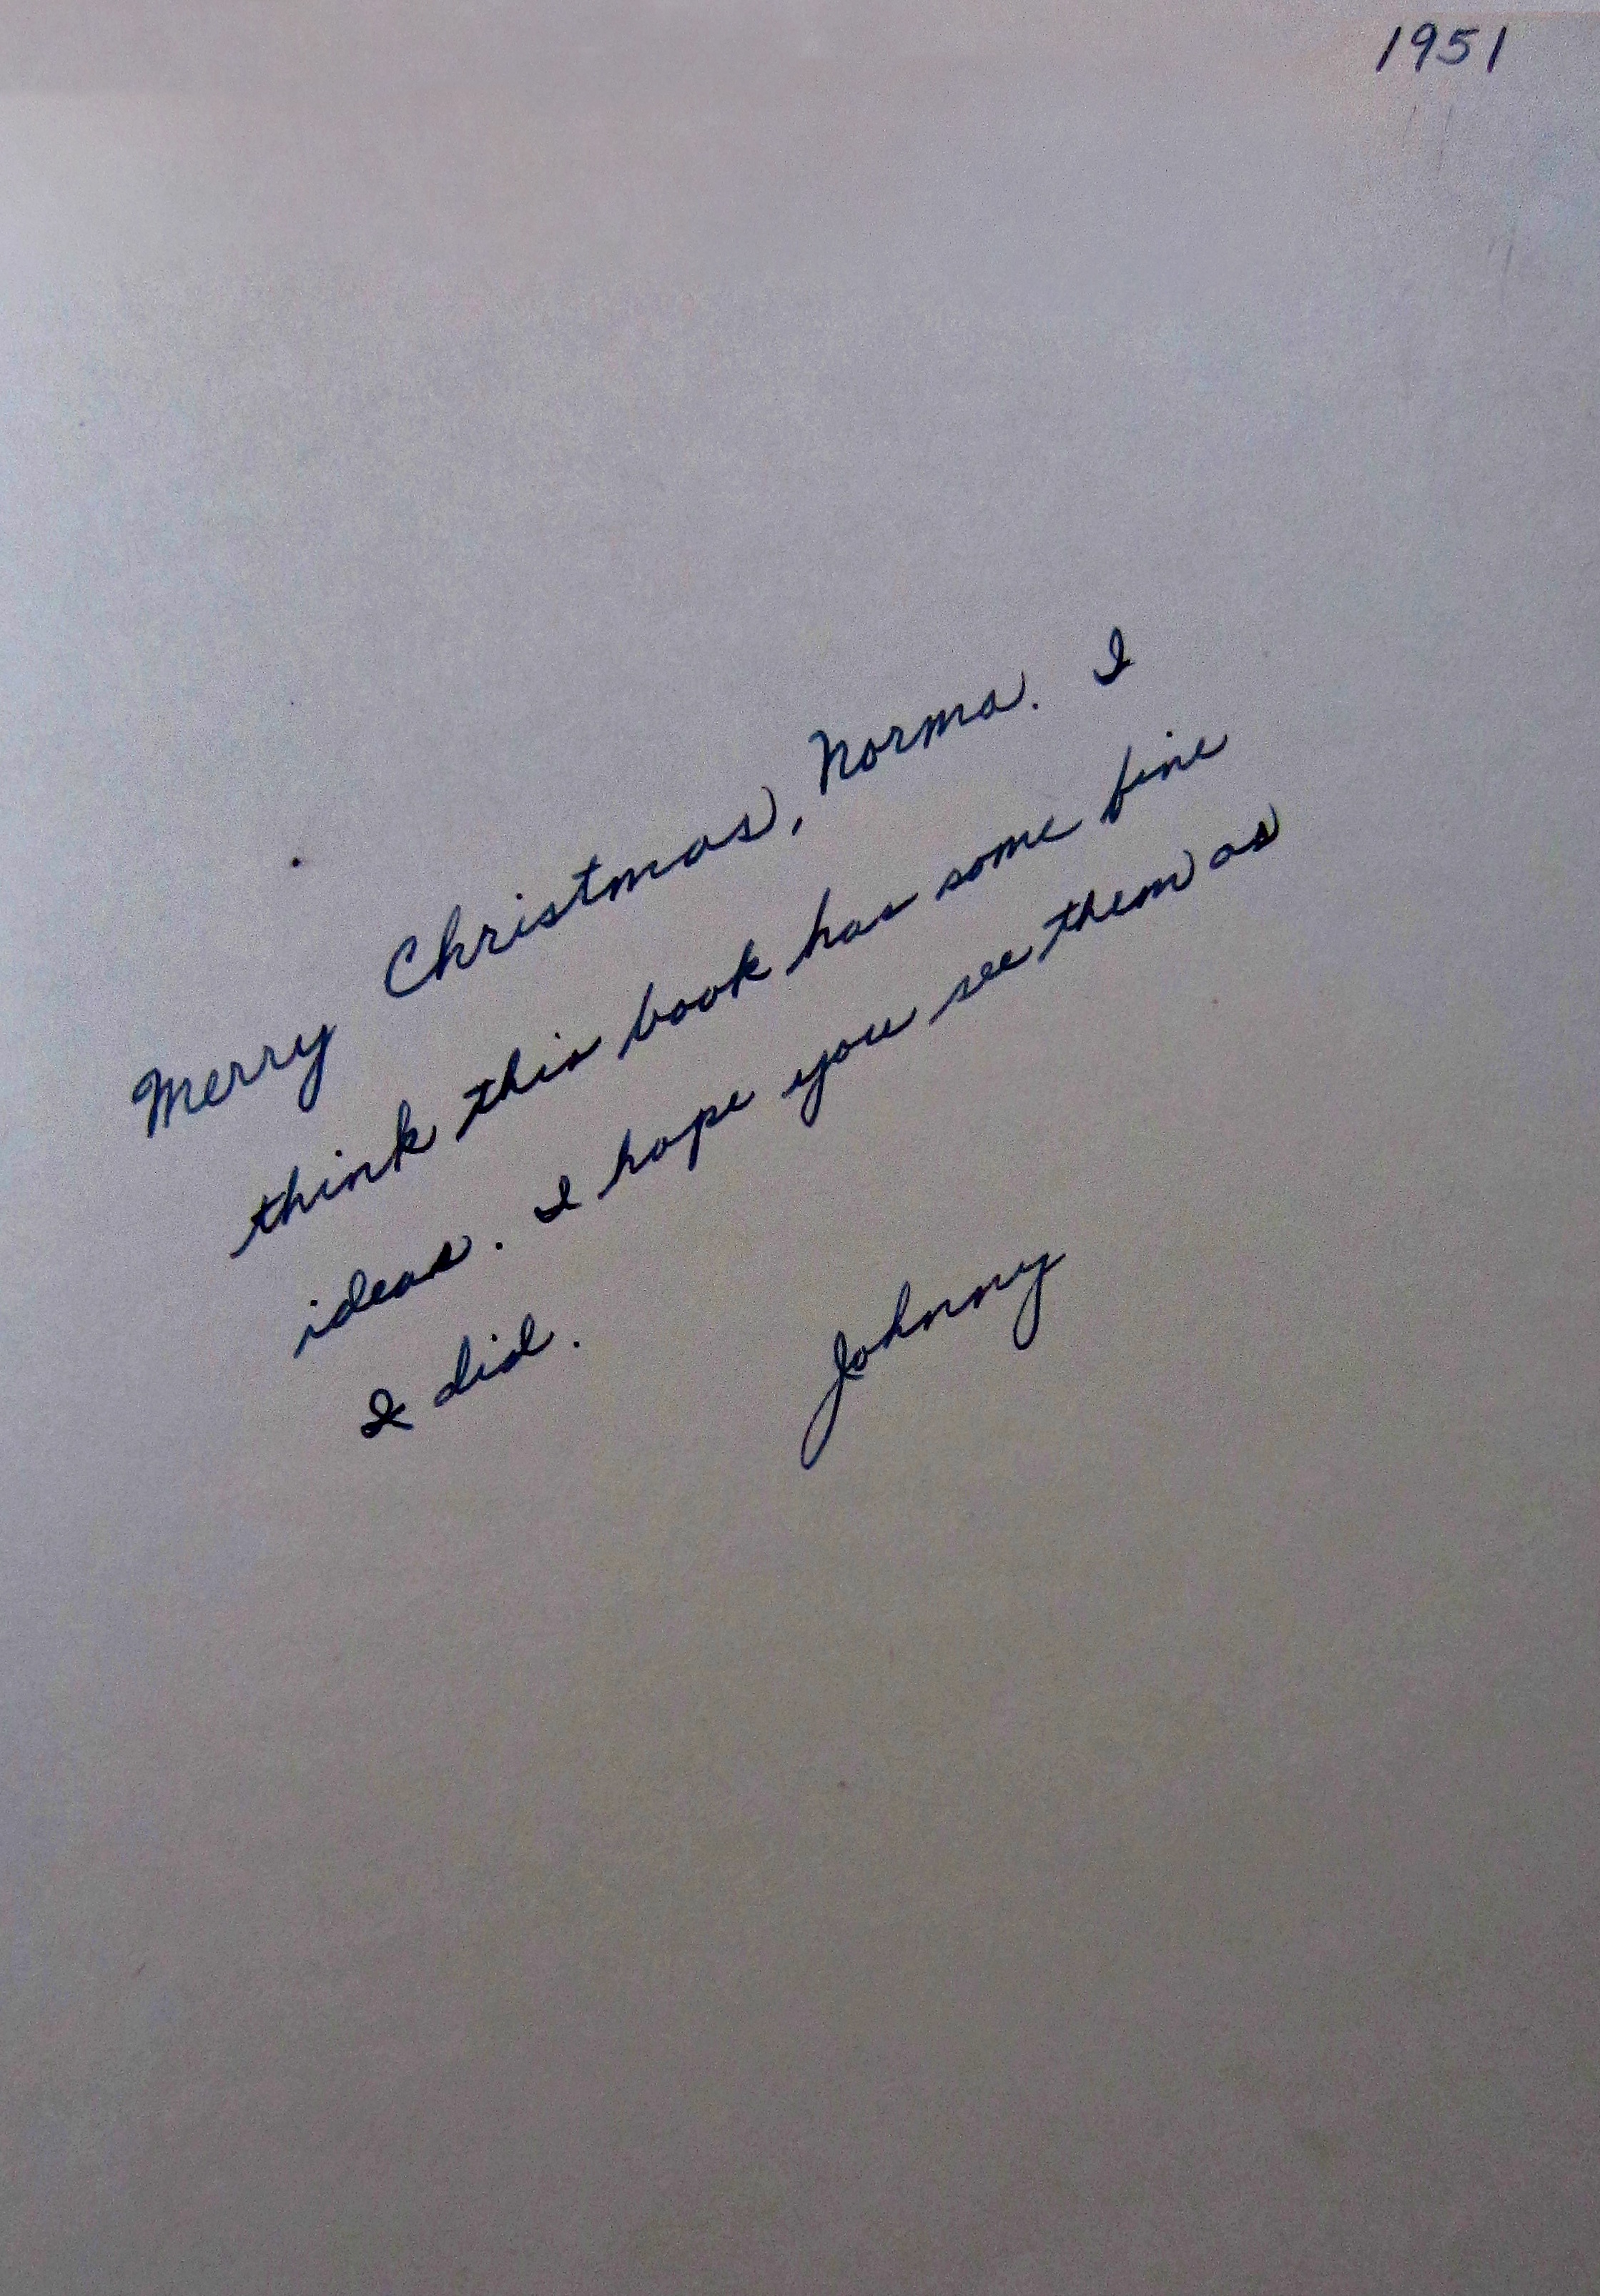 1951
Merry Christmas, Norma. I
think this book has some fine
ideas. I hope you see them as
I did.
Johnny